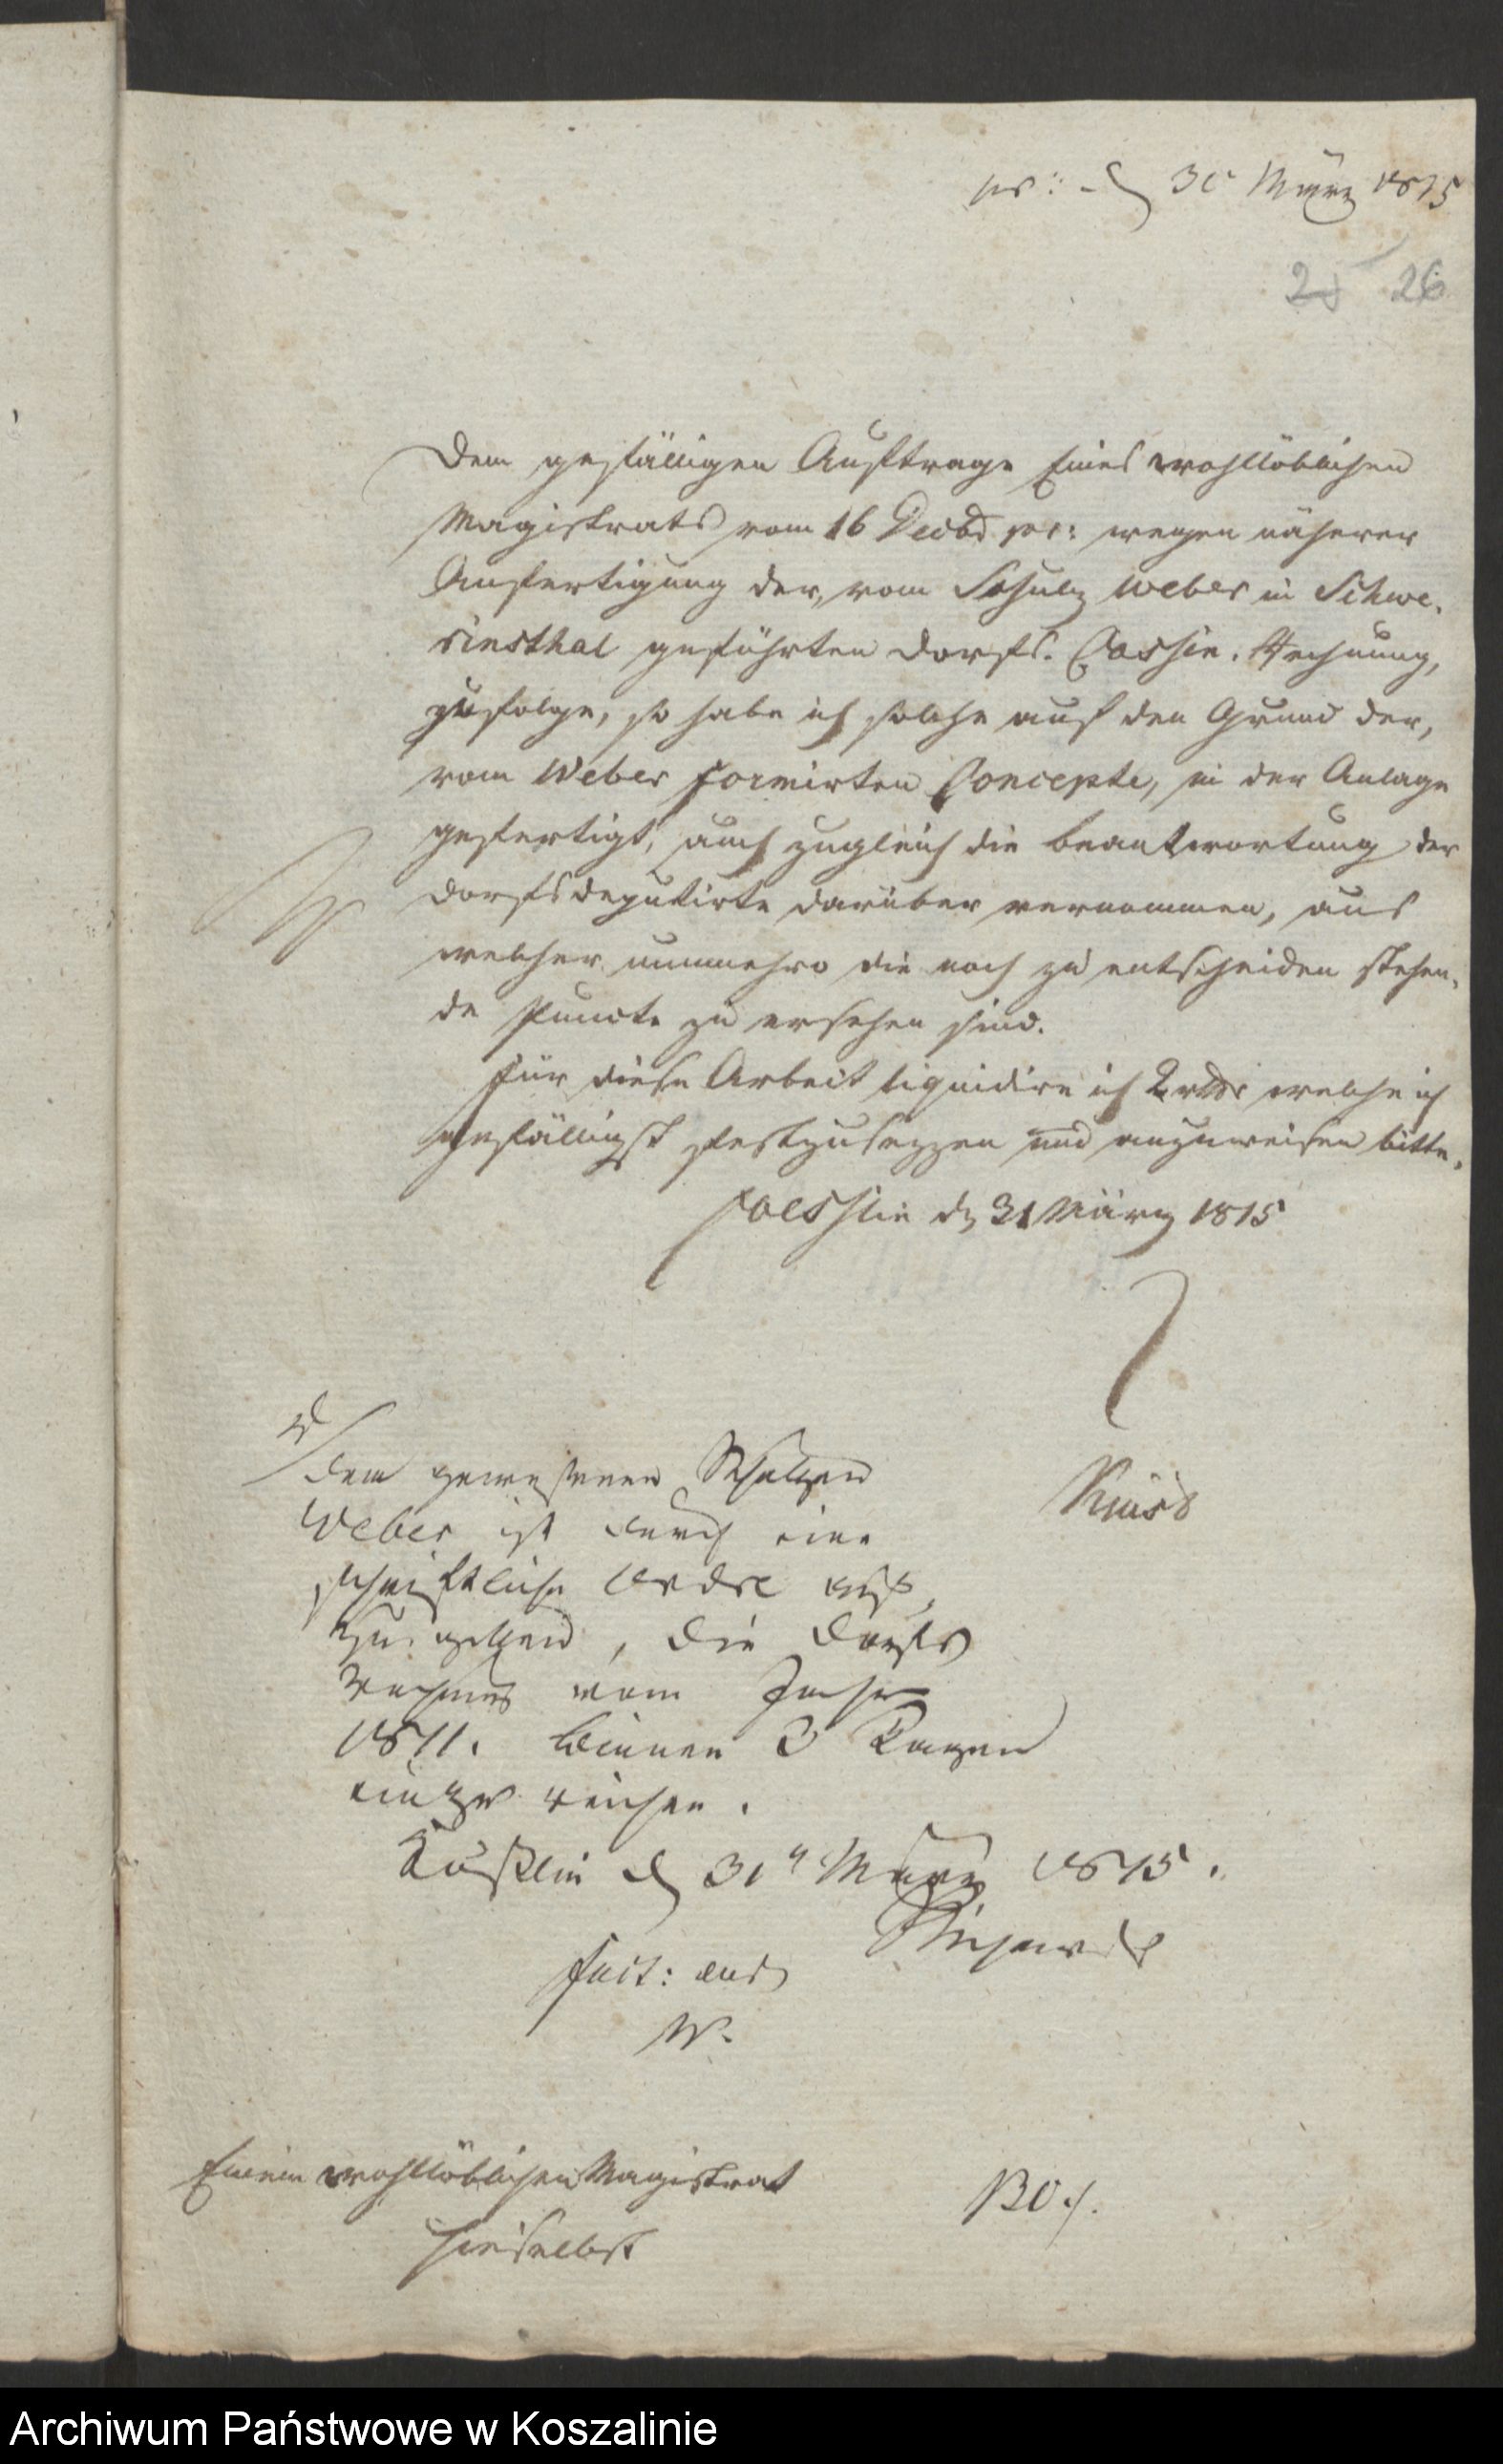 ps: d 31 März 1815
25 26
Dem gefälligen Auftrage Eines wohllöblichen
Magistrats vom 16 Decbr pr: wegen näherer
Anfertigung der, vom Schulz Weber in Schwe-
rinsthal geführten Dorfs-Cassen-Rechnung,
zufolge, so habe ich solche auf den Grund der,
vom Weber formirten Concepte, in der Anlage
gefertigt, auch zugleich die Beantwortung der
Dorfsdeputirte darüber vernommen, aus
welcher nunmehro die noch zu entscheiden stehen-
de Puncte zu ersehen sind.
Für diese Arbeit liquidire ich 2 rthlr welche ich
gefälligst festzusezzen und anzuweisen bitte.
Coesslin d 31 März 1815
Dem gewesenen Schulzen
Weber ist durch eine
schriftliche Ordre auf-
zugeben, die Dorfs
Rechnung vom Jahre
1811. binnen 3 Tagen
einzu reichen.
Cößlin d 31 März 1815.
fact: eod
W.
Einem wohllöblichen Magistrat
hieselbst
Archiwum Państwowe w Koszalinie